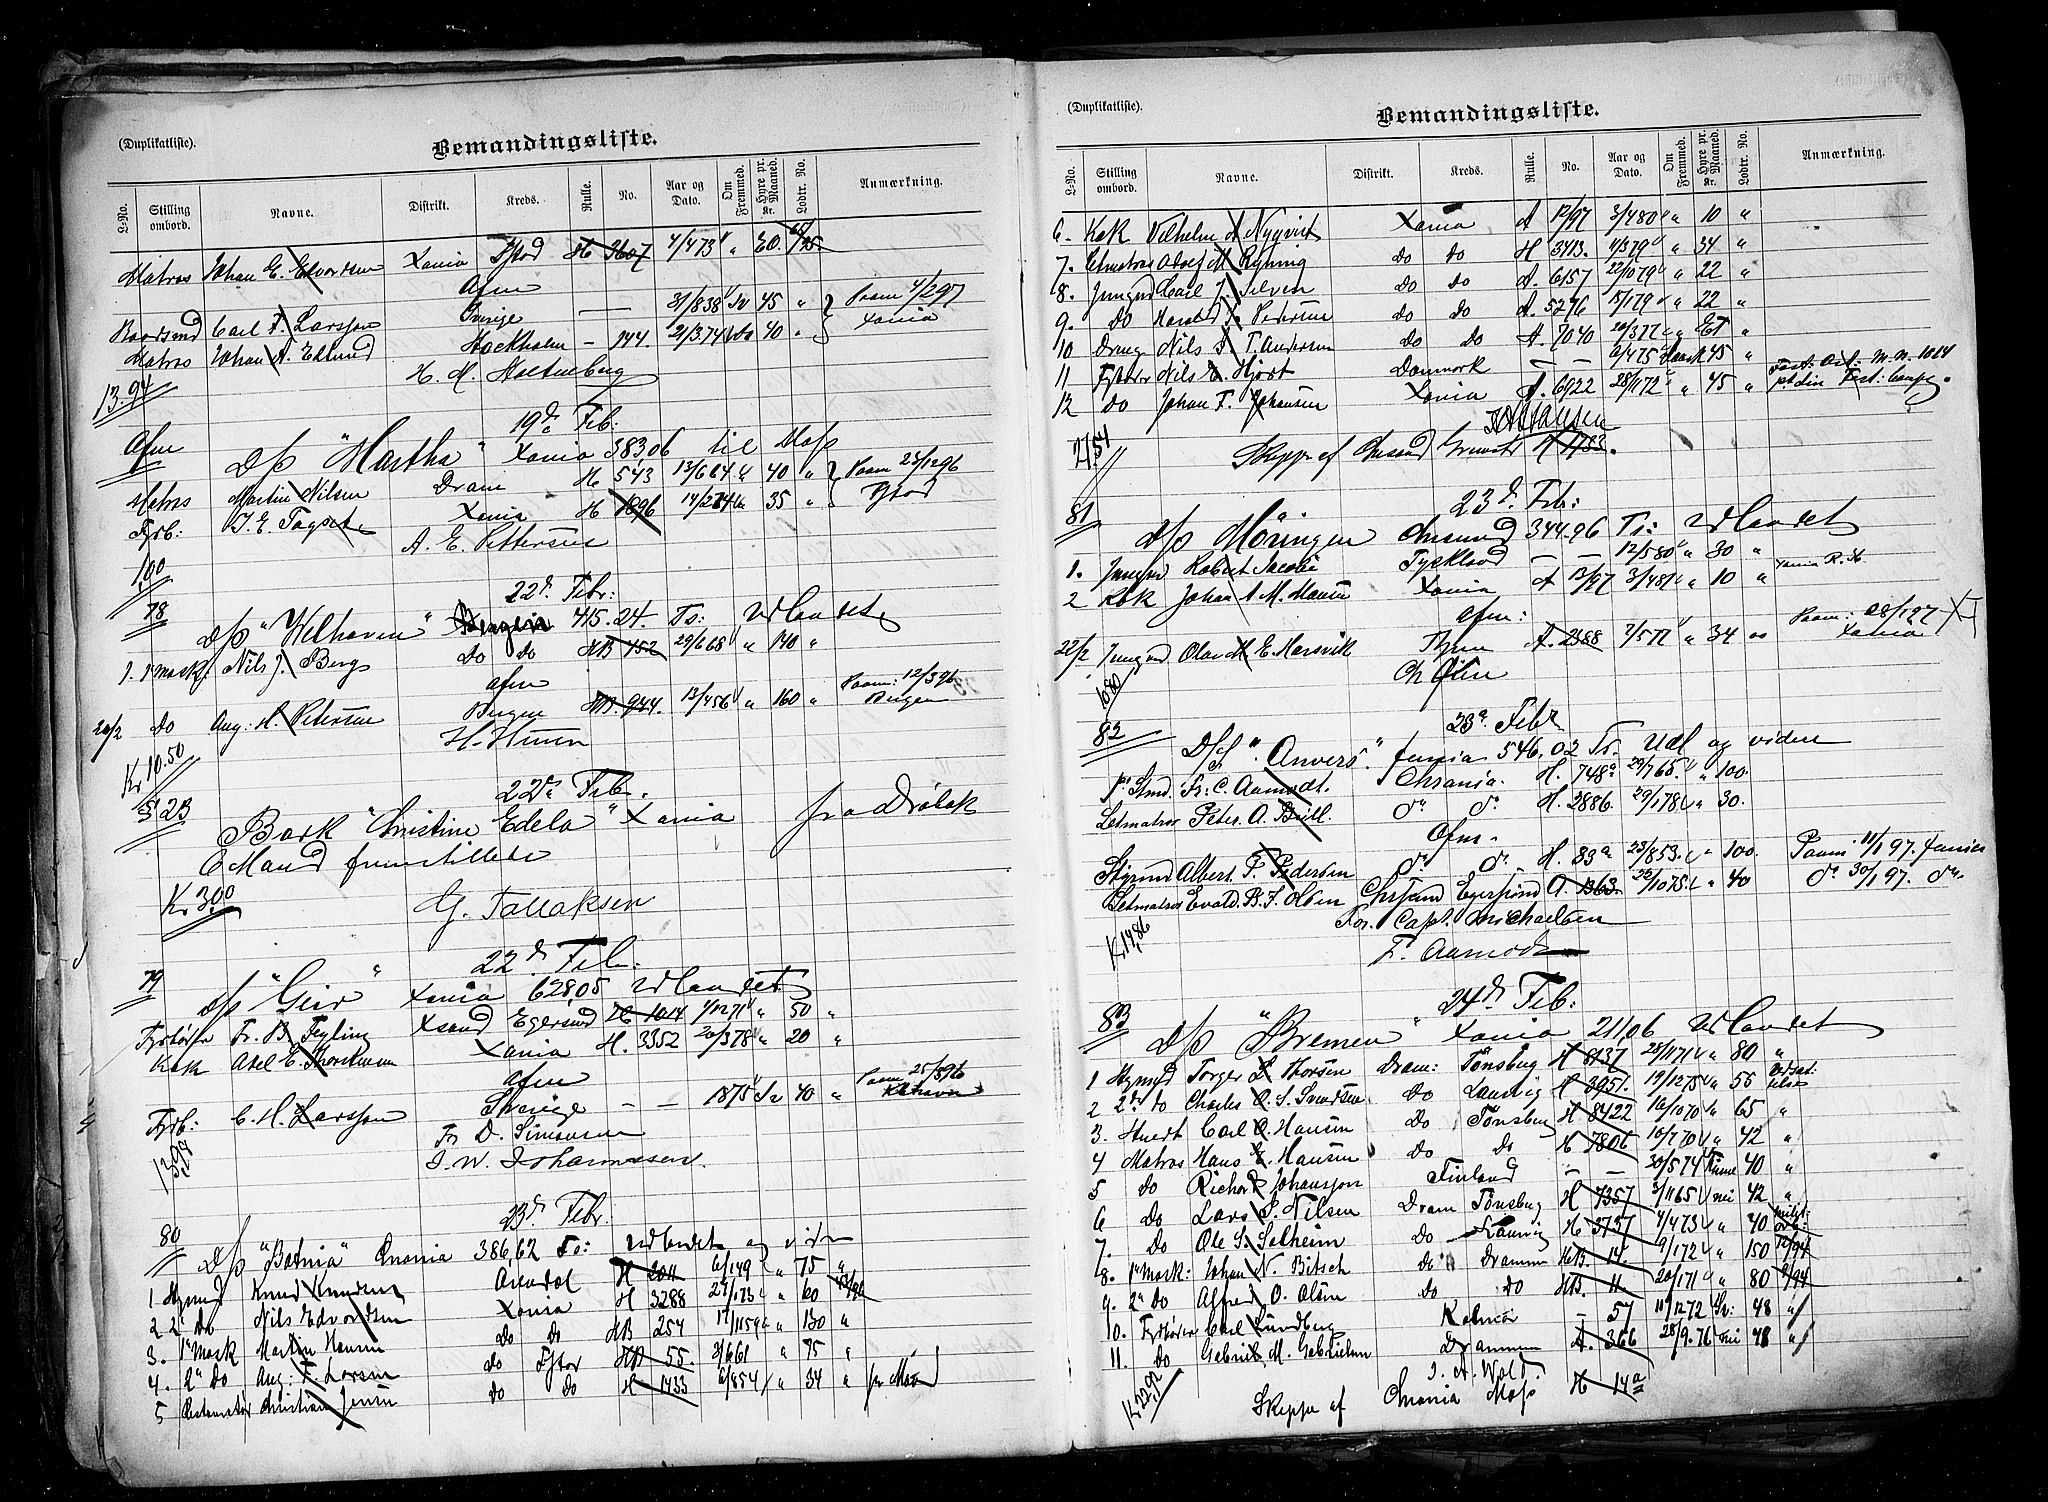 (Duplikatliste).
Bemandingsliste.
L-No. Stilling ombord. Navne. Distrikt. Kreds. Rulle. No. Aar og Dato. Om Fremmed. Hyre pr. Maaned. Kr. Lodtr. No. Anmærkning.
Matros Johan E. Edvardsen Xania H 3607 4/473 "
Afm
Baadsmd Carl F. Larsson Sverige — 31/838 Sv 45 " Paam 4/297
Matros Johan A. Edlund Stockholm — 144. 21/374 do 40 " Xania
H. M. Holtmberg
13.94
19de Feb:
Afm D/S "Martha" Xania 383.06 til Moss
Matros Martin Nilsen Dram H 543 13/664 " 40 " Paam 23/1296
Fyrb: H 1096 35 "
A. E. Pettersen
1,00
22d Febr:
78 D/S "Welhaven" Bergen 415.24. Ts: Udlandet
1. 1 Mask. Nils J. Berg Do Do HB 152 29/668 " 140 "
Afm
20/2 Do Aug: H. Petersen Bergen HB. 944. 13/456 " 160 " Paam: 12/396 Bergen
Kr 10.50
22de Feb.
Bark "Christine Edela" Xania fra Drøbak
6 Mand fremstillede
Kr 3.00 G. Tallaksen
22d Feb:
79 D/S "Geir" Xania 628,05 Udlandet
Fyrbøter Fr. B. Feyling Xsand Egersund H 1014 1/1271 " 50 "
Kok Axel E. Thorkildsen Xania H. 3352 20/378 " 20 "
Afm
Fyrb: C. H. Larsson Sverige — — 1875 Sv 40 " Paam 25/896
Fr D. Simonsen
J. W. Johannessen.
13,98
23d Febr.
80 D/S "Botnia" Xnania 386,62 Ts: Udlandet og viden
1 Stymd Knud Knudsen Arendal H 2011 6/149 " 75 "
2 2 Do Nils Edvardsen Xania H 3288 27/173 " 60
3. 1e Mask Martin Hansen Do Do HB 254 17/1159 " 130 "
4. 2e Do Aug: F. Larsen Do Fstad HB 55. 2/661 " 75 "
5 Christian Jensen Do Do H 1433 6/854 " 34 " fr Moss
(Duplikatliste).
Bemandingsliste.
L-No. Stilling ombord. Navne. Distrikt. Kreds. Rulle. No. Aar og Dato. Om Fremmed. Hyre pr. Maaned. Kr. Lodtr. No. Anmærkning.
6. Kok Vilhelm A. Nyqvist Xania A 12/97 3/480 " 10 "
7. Letmatros Adolf M. Ryning Do Do H 3413. 4/379 " 34 "
8. Jungmd Carl J. Silven Do Do A. 6157 22/1079 " 22 "
9. Do Harald Pedersen Do Do A. 5276 18/179 " 22 "
10 Dreng Nils T. Andersen Do Do A. 7040 20/377 "
11 Fyrbøter Nils C. Hjort Danmark — — 6/475 Dansk 45 "
12 Do Johan F. Johansen Xania A. 6922 28/1172 " 45 "
27.54
Skipper af H 1183.
23d Feb:
81 D/S Møringen Xnsund 344.96 Ts: Udlandet
1. Jungmd Robert Jacobi Tyskland — — 12/580 " 30 "
2 Kok Johan A. M. Hansen Xania A 13/97 3/481 " 10 "
Afm:
22/2 Jungmd Olav M. E. Marsvik A. 2388 7/577 " 34 Paam: 28/127 Xania
Ch Olsen
10.80
23d Febr
82 D/S "Anvers". 546,02 Ts. Udl og viden
1ste Stmd. Fr: C. Aamodt. Chrania. H. 748a 29/765. " 100.
Letmatros Peter. A. Brill. do do H. 2886. 29/178 " 30.
Afm.
Styrmd Albert. F. Pedersen do do H. 83a 23/853. " 100. Paam 11/197.
Letmatros Evald. B. F. Olsen Chrsand Egersund A. 1363 25/1075 " 40 do 30/197. do
For. Capt. Michaelsen
F. Aamodt
Kr 14,86
24d Feb:
83 D/S "Bremen" Xania 211,06 Udlandet
1 Stymd Torger L. Thorsen Dram: Tønsbrg H 8137 25/1171 " 80 "
2 2de do Charles O. S. Svendsen Do Laurvig H 3951. 19/1275 " 55
3. Stuert Carl O. Hansen Do Tønsberg H 8422 16/1070 " 65 "
4 Matros Hans E. Hansen Do Do H 7806 10/770 " 42 "
5 Do Richard Johansson Finland — — 30/574 Finne 40 "
6 Do Lars S. Nilsen Dram Tønsbrg H 7357 3/1165 nei 42 "
7. Do Ole S. Solheim Do Laurvig H 3737 4/473 " 40
8. 1e Mask: Johan N. Bitsch do Drammen HB. 14. 9/172 " 150 12/94
9. 2e Do Alfred O. Olsen Do Do HB. 11 20/171 " 80 9/94
10. Fyrbøter Carl Lundberg Kalmar — 57 11/1272 Sv: 48 "
11. Do Gabriel M. Gabrielsen Drammen A. 366 28/9.76 nei 48 "
J. A. Wold.
Kr 22,92 Skipper af Chrania Moss H 14a